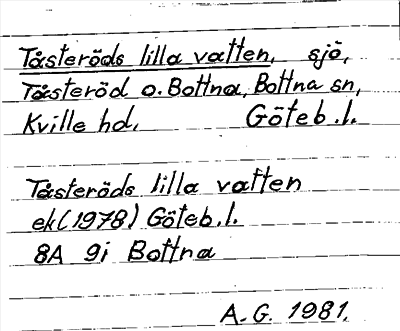 Tåsteröds lilla vatten, sjö,
Tåsteröd o. Bottna, Bottna sn,
Kville hd. Göteb.l.
Tåsteröds lilla vatten
ek (1978) Göteb.l.
8A 9i Bottna
A.G. 1981.